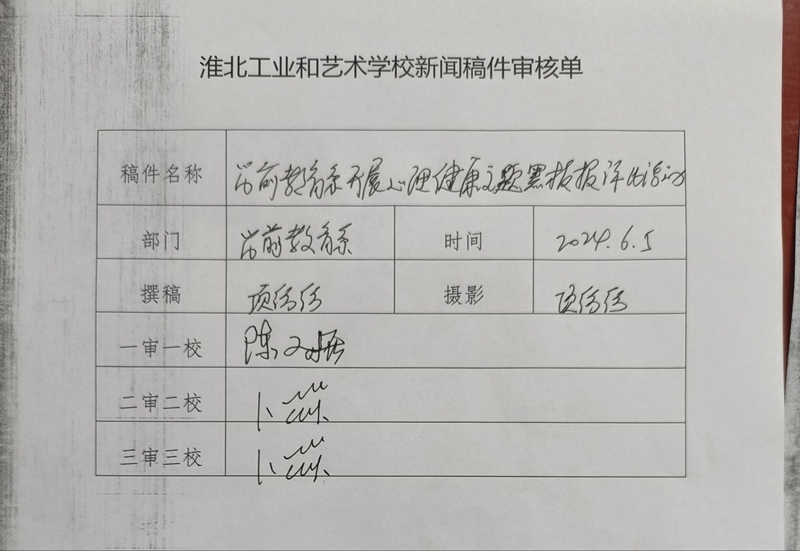 淮北工业和艺术学校新闻稿件审核单
稿件名称 学前教育系开展心理健康主题黑板报评比活动
部门 学前教育系 时间 2024.6.5
撰稿 项 摄影 项
一审一校 陈文
二审二校 卜
三审三校 卜